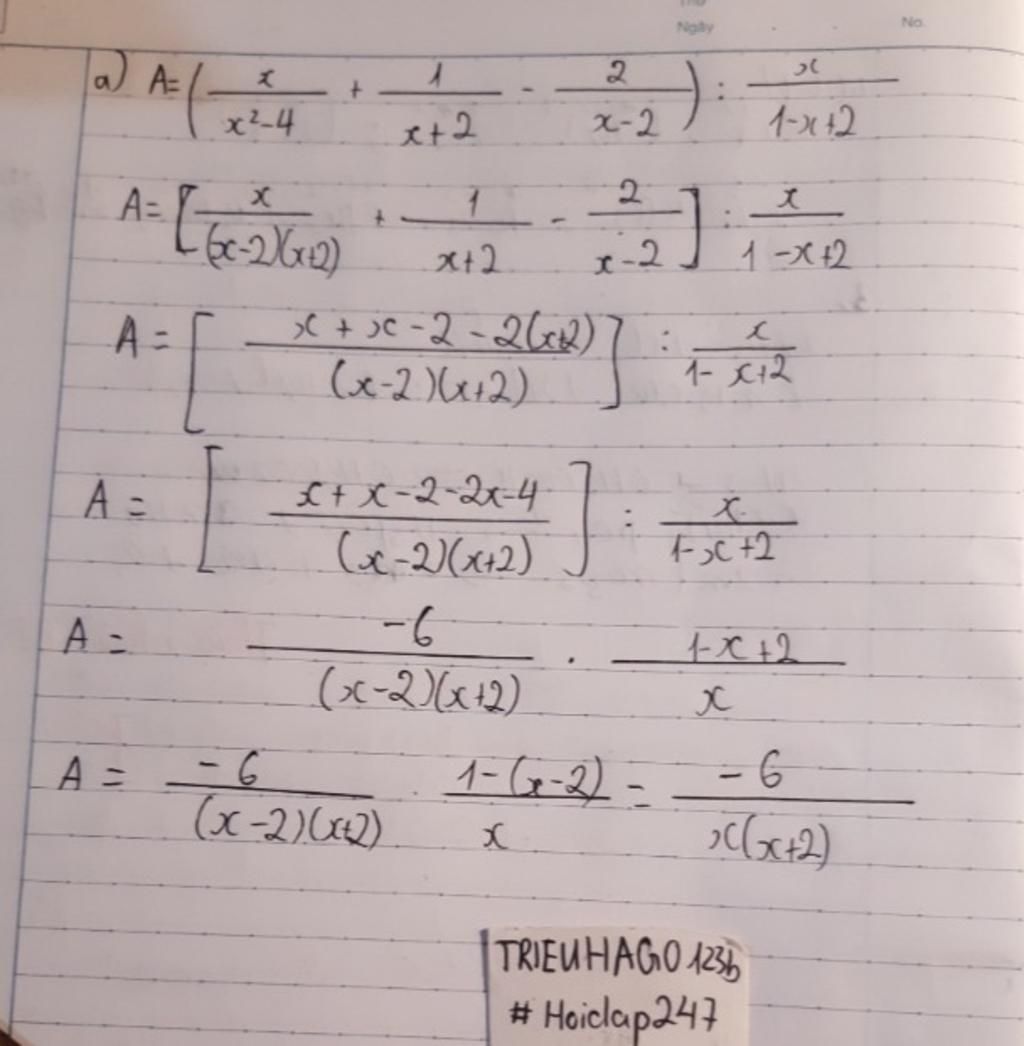 Thứ
Ngày No.
a) A=(x/(x²-4) + 1/(x+2) - 2/(x-2)) : x/(1-x+2)
A=[x/((x-2)(x+2)) + 1/(x+2) - 2/(x-2)] : x/(1-x+2)
A=[(x+x-2-2(x+2))/((x-2)(x+2))] : x/(1-x+2)
A=[(x+x-2-2x-4)/((x-2)(x+2))] : x/(1-x+2)
A= -6/((x-2)(x+2)) . (1-x+2)/x
A= -6/((x-2)(x+2)) . (1-(x-2))/x = -6/(x(x+2))
TRIEUHAGO123b
# Hoiclap247